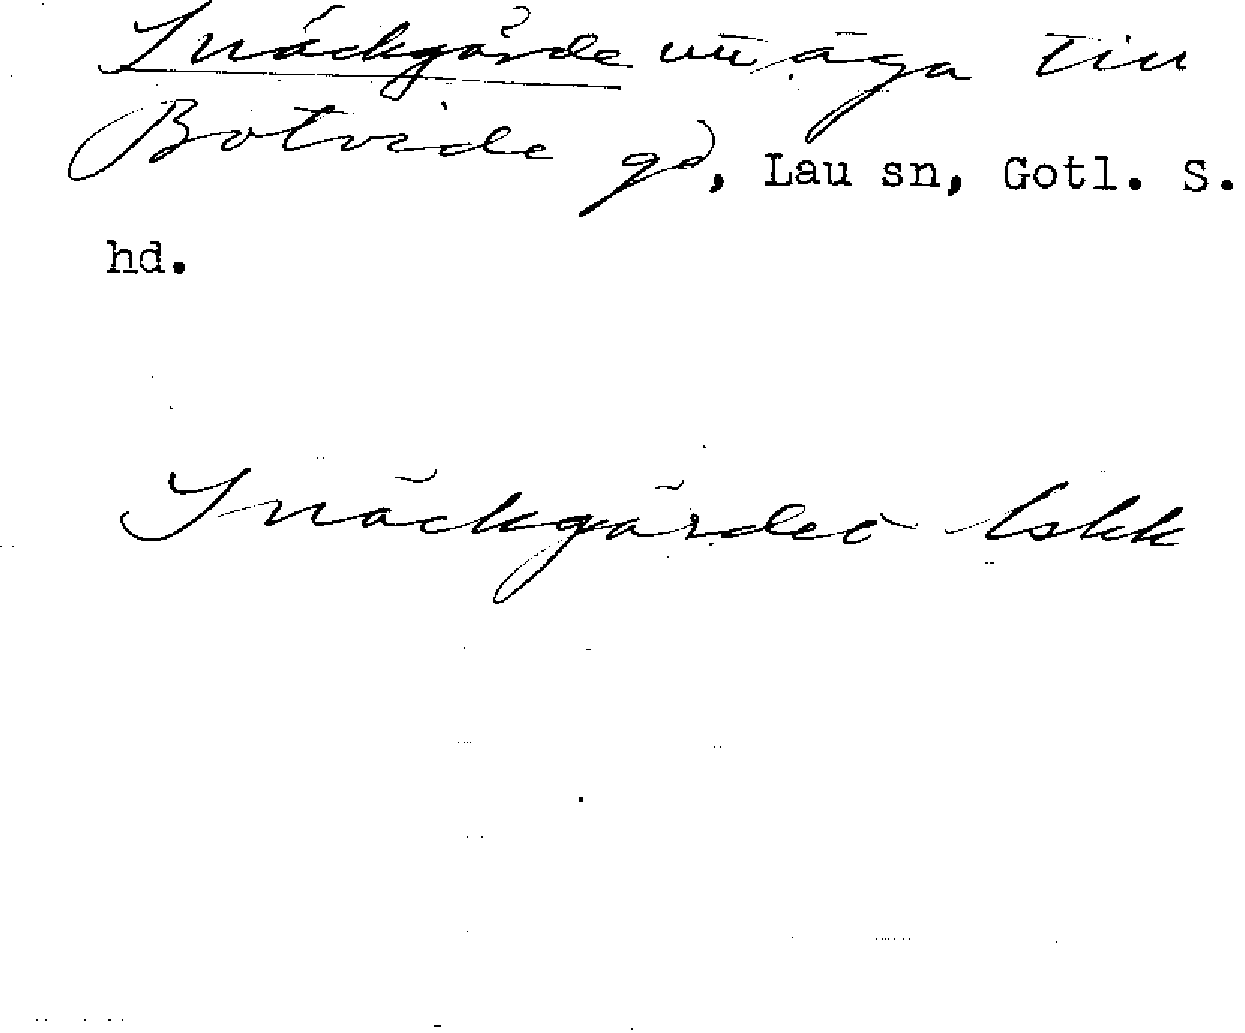 Snäckgårde utäga till
Botvide gd, Lau sn, Gotl. S.
hd.
Snäckgärdet lskk